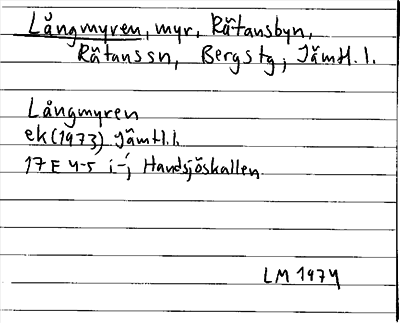 Långmyren, myr, Rätansbyn,
Rätans sn, Bergs tg, Jämtl. l.
Långmyren
ek (1973) Jämtl. l.
17E 4-5 i-j Handsjöskallen
LM 1974